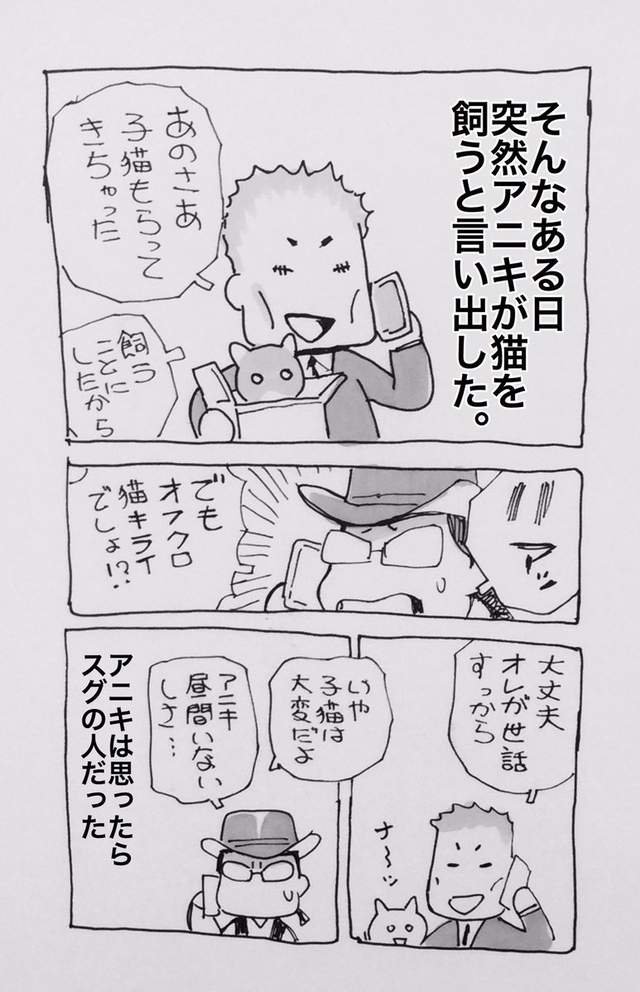 そんなある日
突然アニキが猫を
飼うと言い出した。
あのさあ
子猫もらって
きちゃった
飼う
ことに
したから
でも
オフクロ
猫キライ
でしょ!?
大丈夫
オレが世話
すっから
いや
子猫は
大変だよ
アニキ
昼間いない
しさ…
アニキは思ったら
スグの人だった